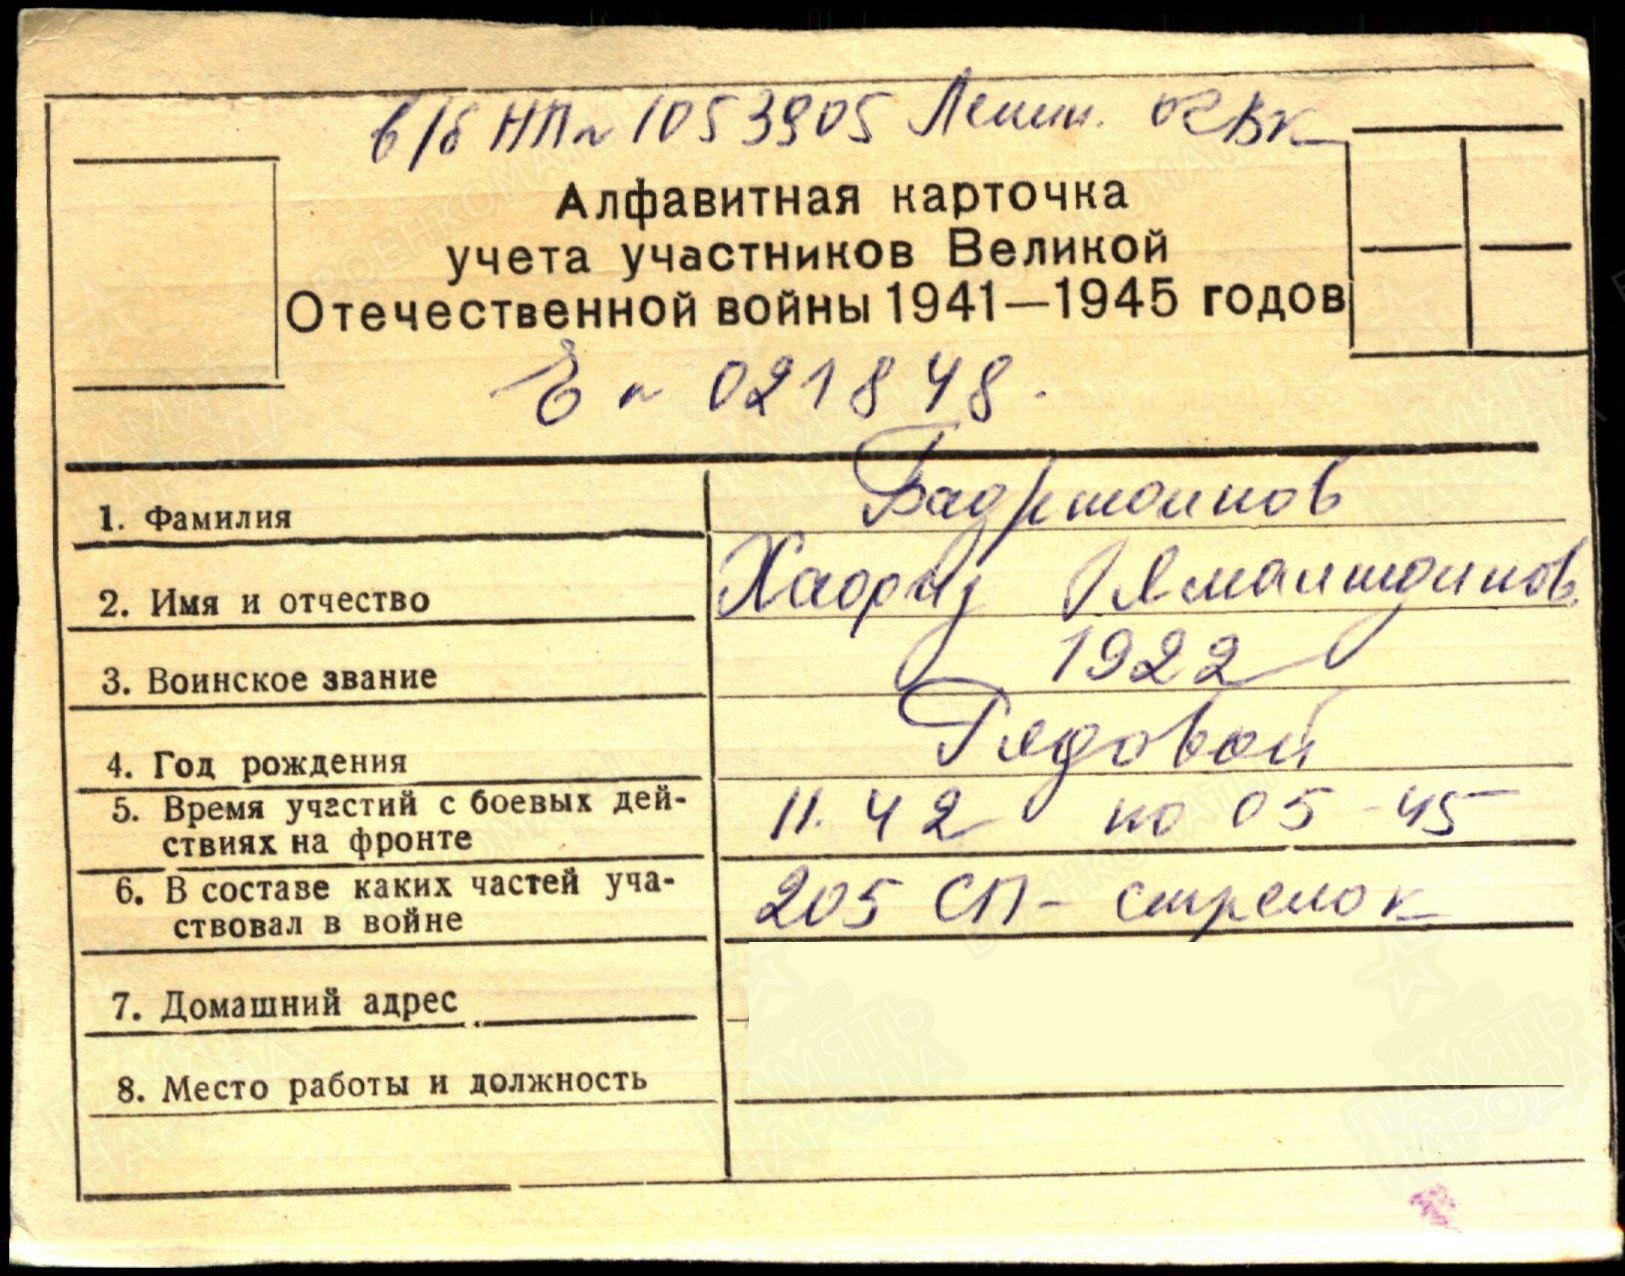 в/б НП № 1053905 Ленин. ОГВК
Алфавитная карточка
учета участников Великой
Отечественной войны 1941—1945 годов
Е № 021848.
1. Фамилия
2. Имя и отчество
1922
3. Воинское звание
Рядовой
4. Год рождения
5. Время участий с боевых дей-
ствиях на фронте
11.42 по 05-45
6. В составе каких частей уча-
ствовал в войне
205 СП - стрелок
7. Домашний адрес
8. Место работы и должность
ПАМЯТЬ
НАРОДА